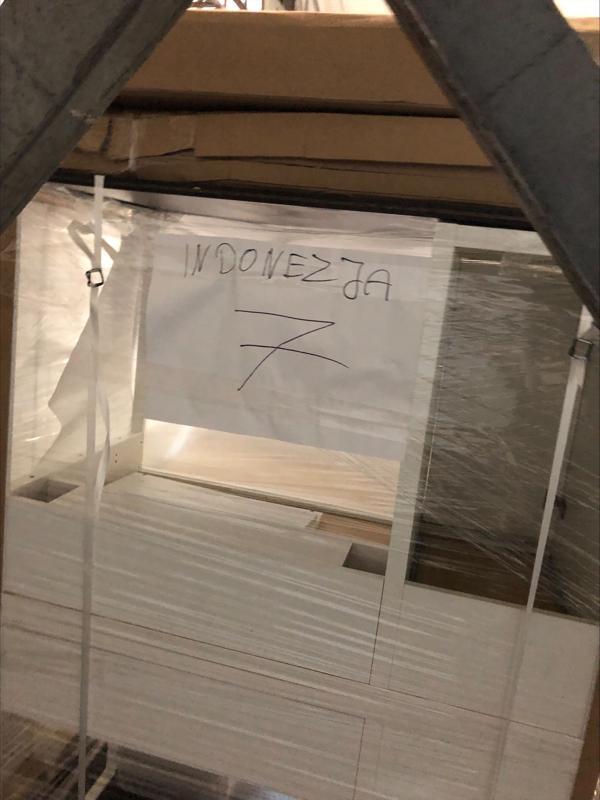 INDONEZJA
7